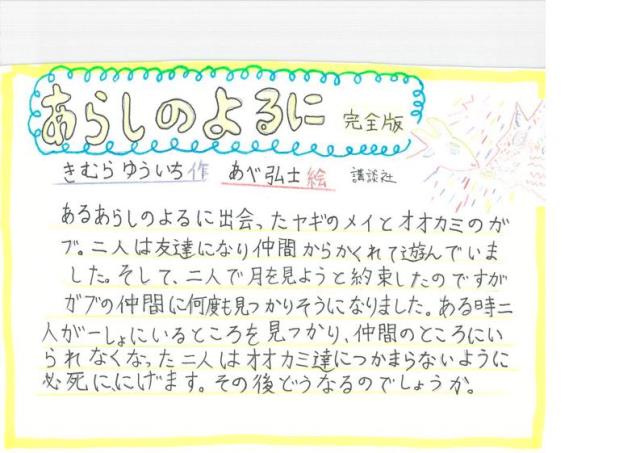 あらしのよるに 完全版
きむらゆういち作 あべ弘士絵 講談社
あるあらしのよるに出会ったヤギのメイとオオカミのガ
ブ。二人は友達になり仲間からかくれて遊んでいま
した。そして、二人で月を見ようと約束したのですが
ガブの仲間に何度も見つかりそうになりました。ある時二
人がーしょにいるところを見つかり、仲間のところにい
られなくなった二人はオオカミ達につかまらないように
必死に、にげます。その後どうなるのでしょうか。